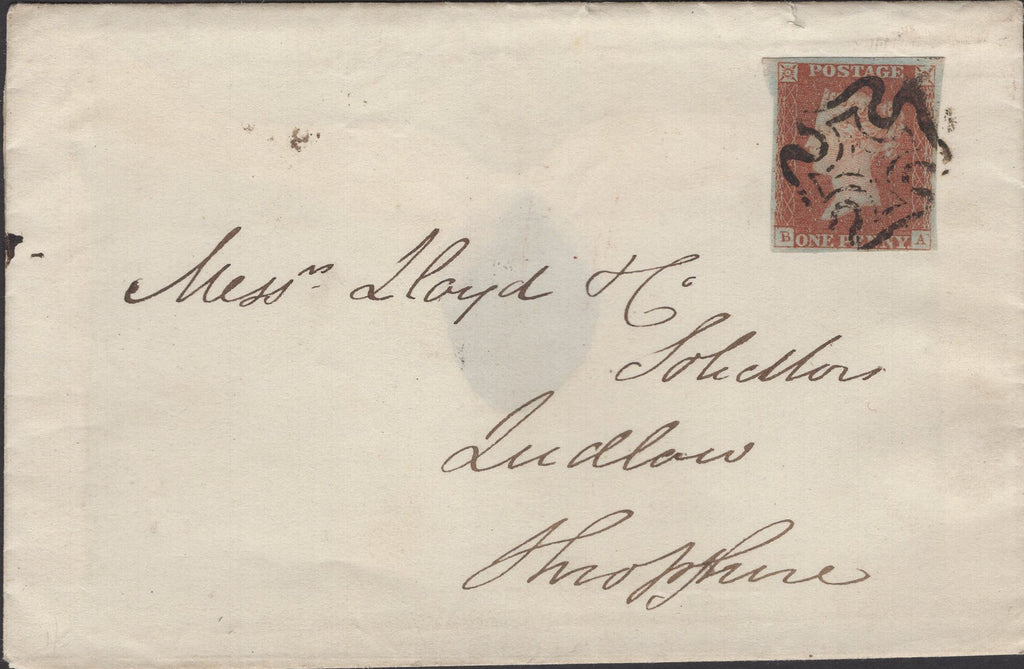 POSTAGE
B ONE PENNY A
Messrs Lloyd & Co
Solicitors
Ludlow
Shropshire